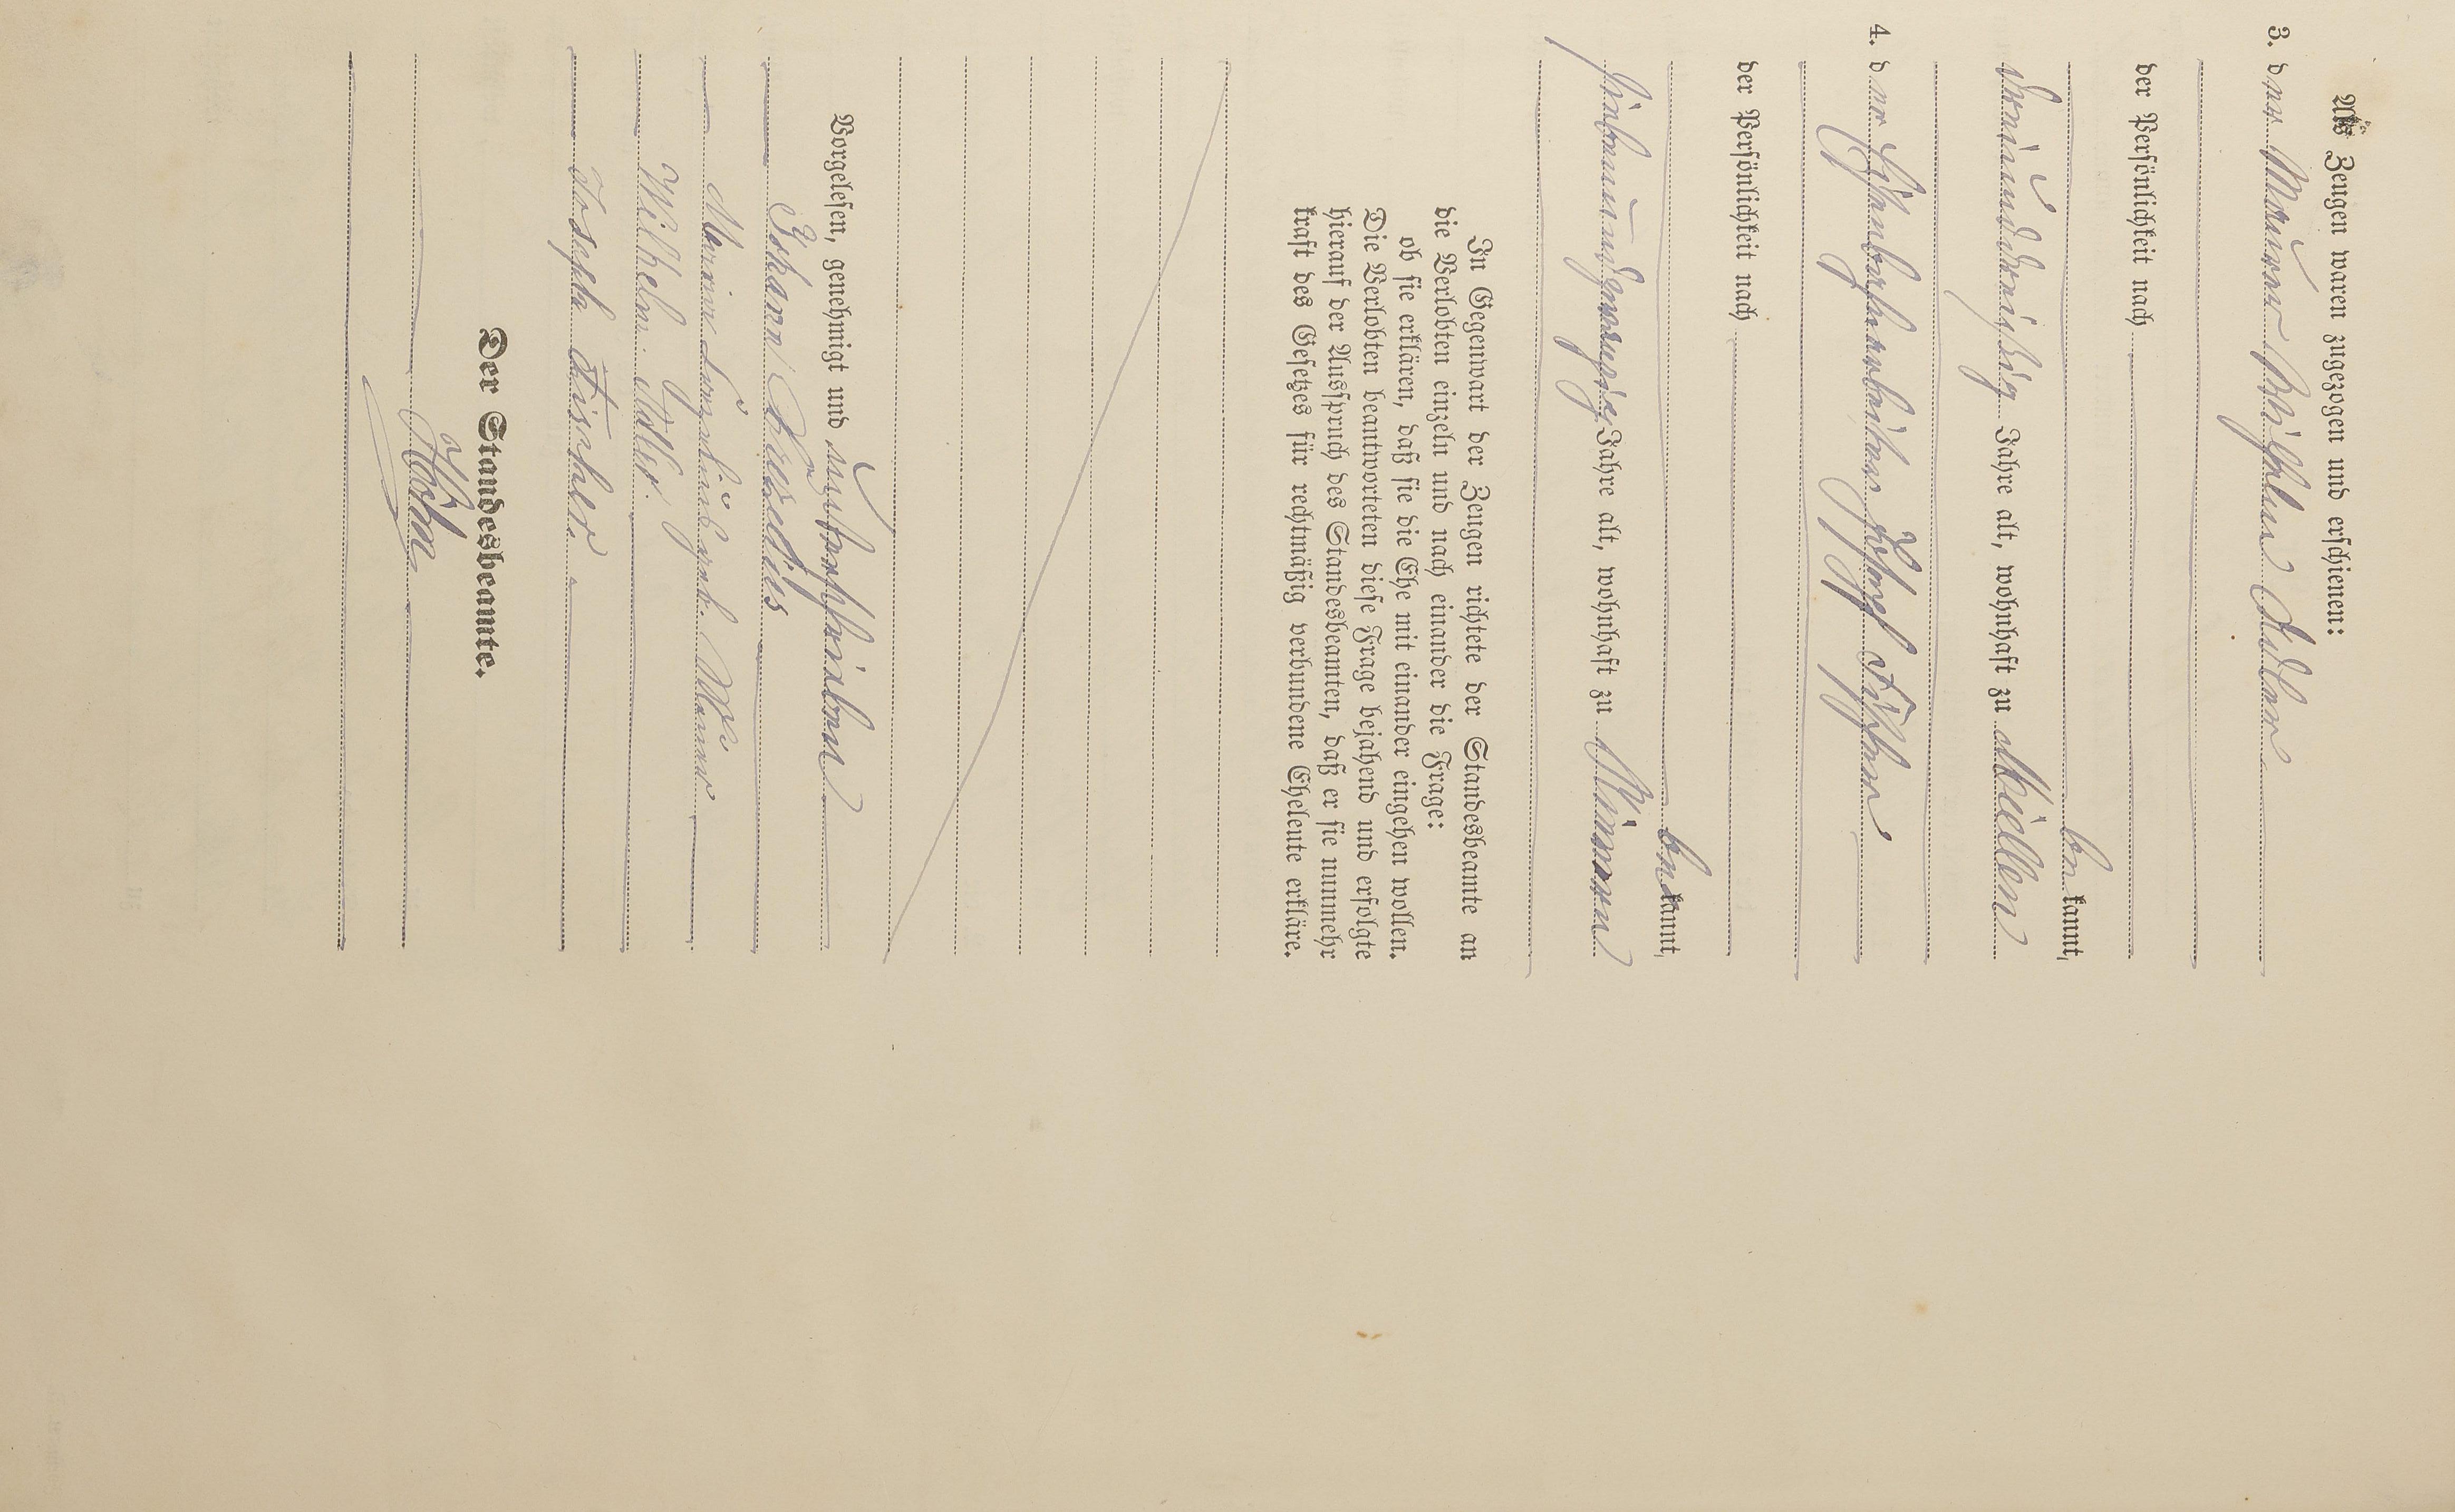 Als Zeugen waren zugezogen und erschienen:
3. der Maurer Wilhelm Adler
der Persönlichkeit nach
bekannt,
dreiunddreißig Jahre alt, wohnhaft zu Miellen
4. der Joseph Fischer
der Persönlichkeit nach
bekannt,
siebenundzwanzig Jahre alt, wohnhaft zu
In Gegenwart der Zeugen richtete der Standesbeamte an
die Verlobten einzeln und nach einander die Frage:
ob sie erklären, daß sie die Ehe mit einander eingehen wollen.
Die Verlobten beantworteten diese Frage bejahend und erfolgte
hierauf der Ausspruch des Standesbeamten, daß er sie nunmehr
kraft des Gesetzes für rechtmäßig verbundene Eheleute erkläre.
Vorgelesen, genehmigt und unterschrieben
Johann
geb.
Wilhelm Adler.
Joseph Fischer.
Der Standesbeamte.